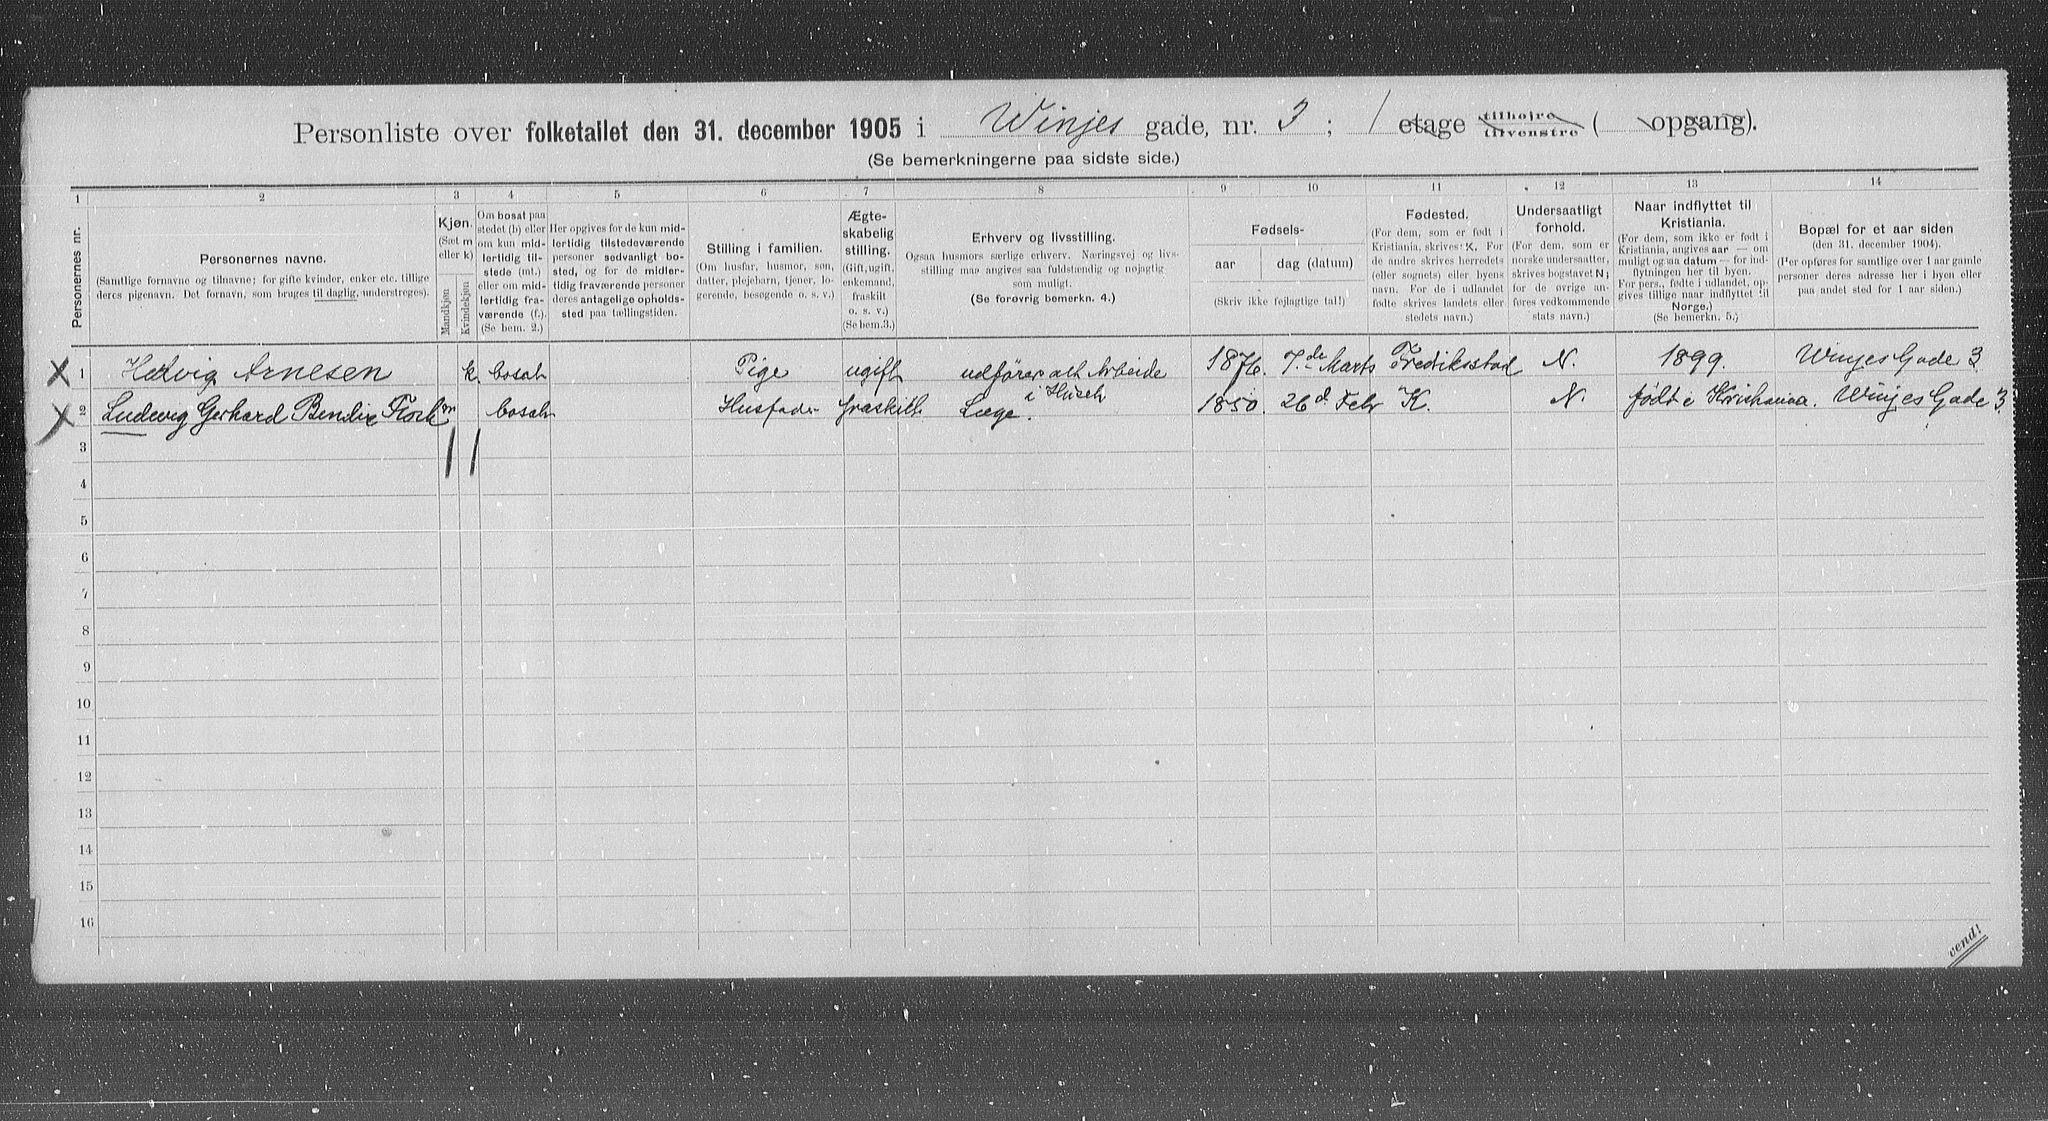 Personliste over folketallet den 31. december 1905 i Winjes gade, nr. 3 ; / etage tilhøjre tilvenstre ( opgang).
(Se bemerkningerne paa sidste side.)
1 2 3 4 5 6 7 8 9 10 11 12 13 14
Personernes nr.
Personernes navne.
(Samtlige fornavne og tilnavne; for gifte kvinder, enker etc. tillige
deres pigenavn. Det fornavn, som bruges til daglig, understreges).
Kjøn.
(Sæt m
eller k)
Mandkjøn
Kvindekjøn
Om bosat paa
stedet (b) eller
om kun mid-
lertidig til-
stede (mt.)
eller om mid-
lertidig fra-
værende (f.).
(Se bem. 2.)
Her opgives for de kun mid-
lertidig tilstedeværende
personer sedvanligt bo-
sted, og for de midler-
tidig fraværende personer
deres antagelige opholds-
sted paa tællingstiden.
Stilling i familien.
(Om husfar, husmor, søn,
datter, plejebarn, tjener, lo-
gerende, besøgende o. s. v.)
Ægte-
skabelig
stilling.
(Gift, ugift,
enkemand,
fraskilt
o. s. v.)
(Se bem.3.)
Erhverv og livsstilling.
Ogsaa husmors særlige erhverv. Næringsvej og livs-
stilling maa angives saa fuldstændig og nøjagtig
som muligt.
(Se forøvrig bemerkn. 4.)
Fødsels-
aar
dag (datum)
(Skriv ikke fejlagtige tal!)
Fødested.
(For dem, som er født i
Kristiania, skrives K. For
de andre skrives herredets
(eller sognets) eller byens
navn. For de i udlandet
fødte skrives landets eller
stedets navn.)
Undersaatligt
forhold.
(For dem, som er
norske undersaatter,
skrives bogstavet N;
for de øvrige an-
føres vedkommende
stats navn.)
Naar indflyttet til
Kristiania.
(For dem, som ikke er født i
Kristiania, angives aar — om
muligt ogsaa datum — for ind-
flytningen her til byen.
For pers., fødte i udlandet, op-
gives tillige naar indflyttet til
Norge.)
(Se bemerkn. 5.)
Bopæl for et aar siden
(den 31. december 1904).
(Her opføres for samtlige over 1 aar gamle
personer deres adresse her i byen eller
paa andet sted for 1 aar siden.)
1 Hedvig Arnesen k. bosat Pige ugift udfører alt Arbeide i Huset 1876. 7.de Marts Fredriksstad N. 1899. Winjes Gade 3
2 Ludvig Gerhard Bendix Flock m bosat Husfader fraskilt Læge. 1850 26 d. Febr K. N. født i Kristiania. Winjes Gade 3.
3
4
5
6
7
8
9
10
11
12
13
14
15
16
vend!